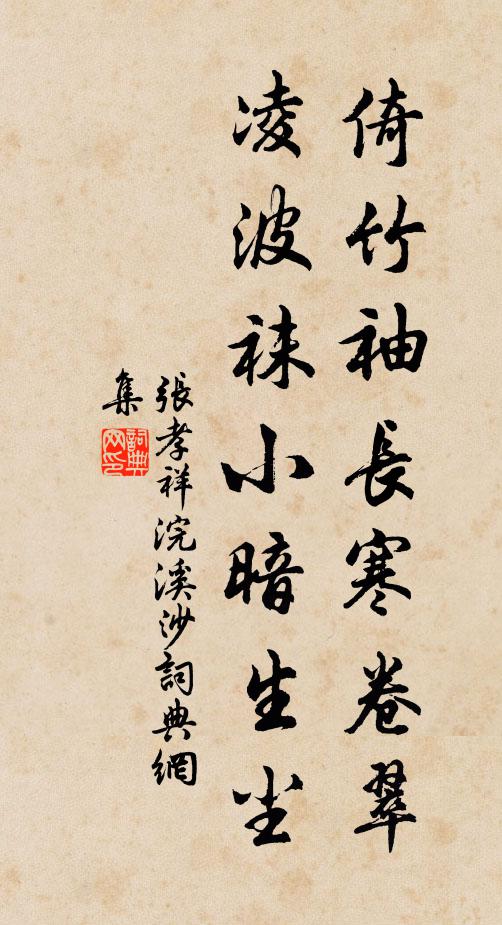 倚竹袖長寒卷翠
凌波袜小暗生尘
張孝祥浣溪沙詞典網
集
詞典网印